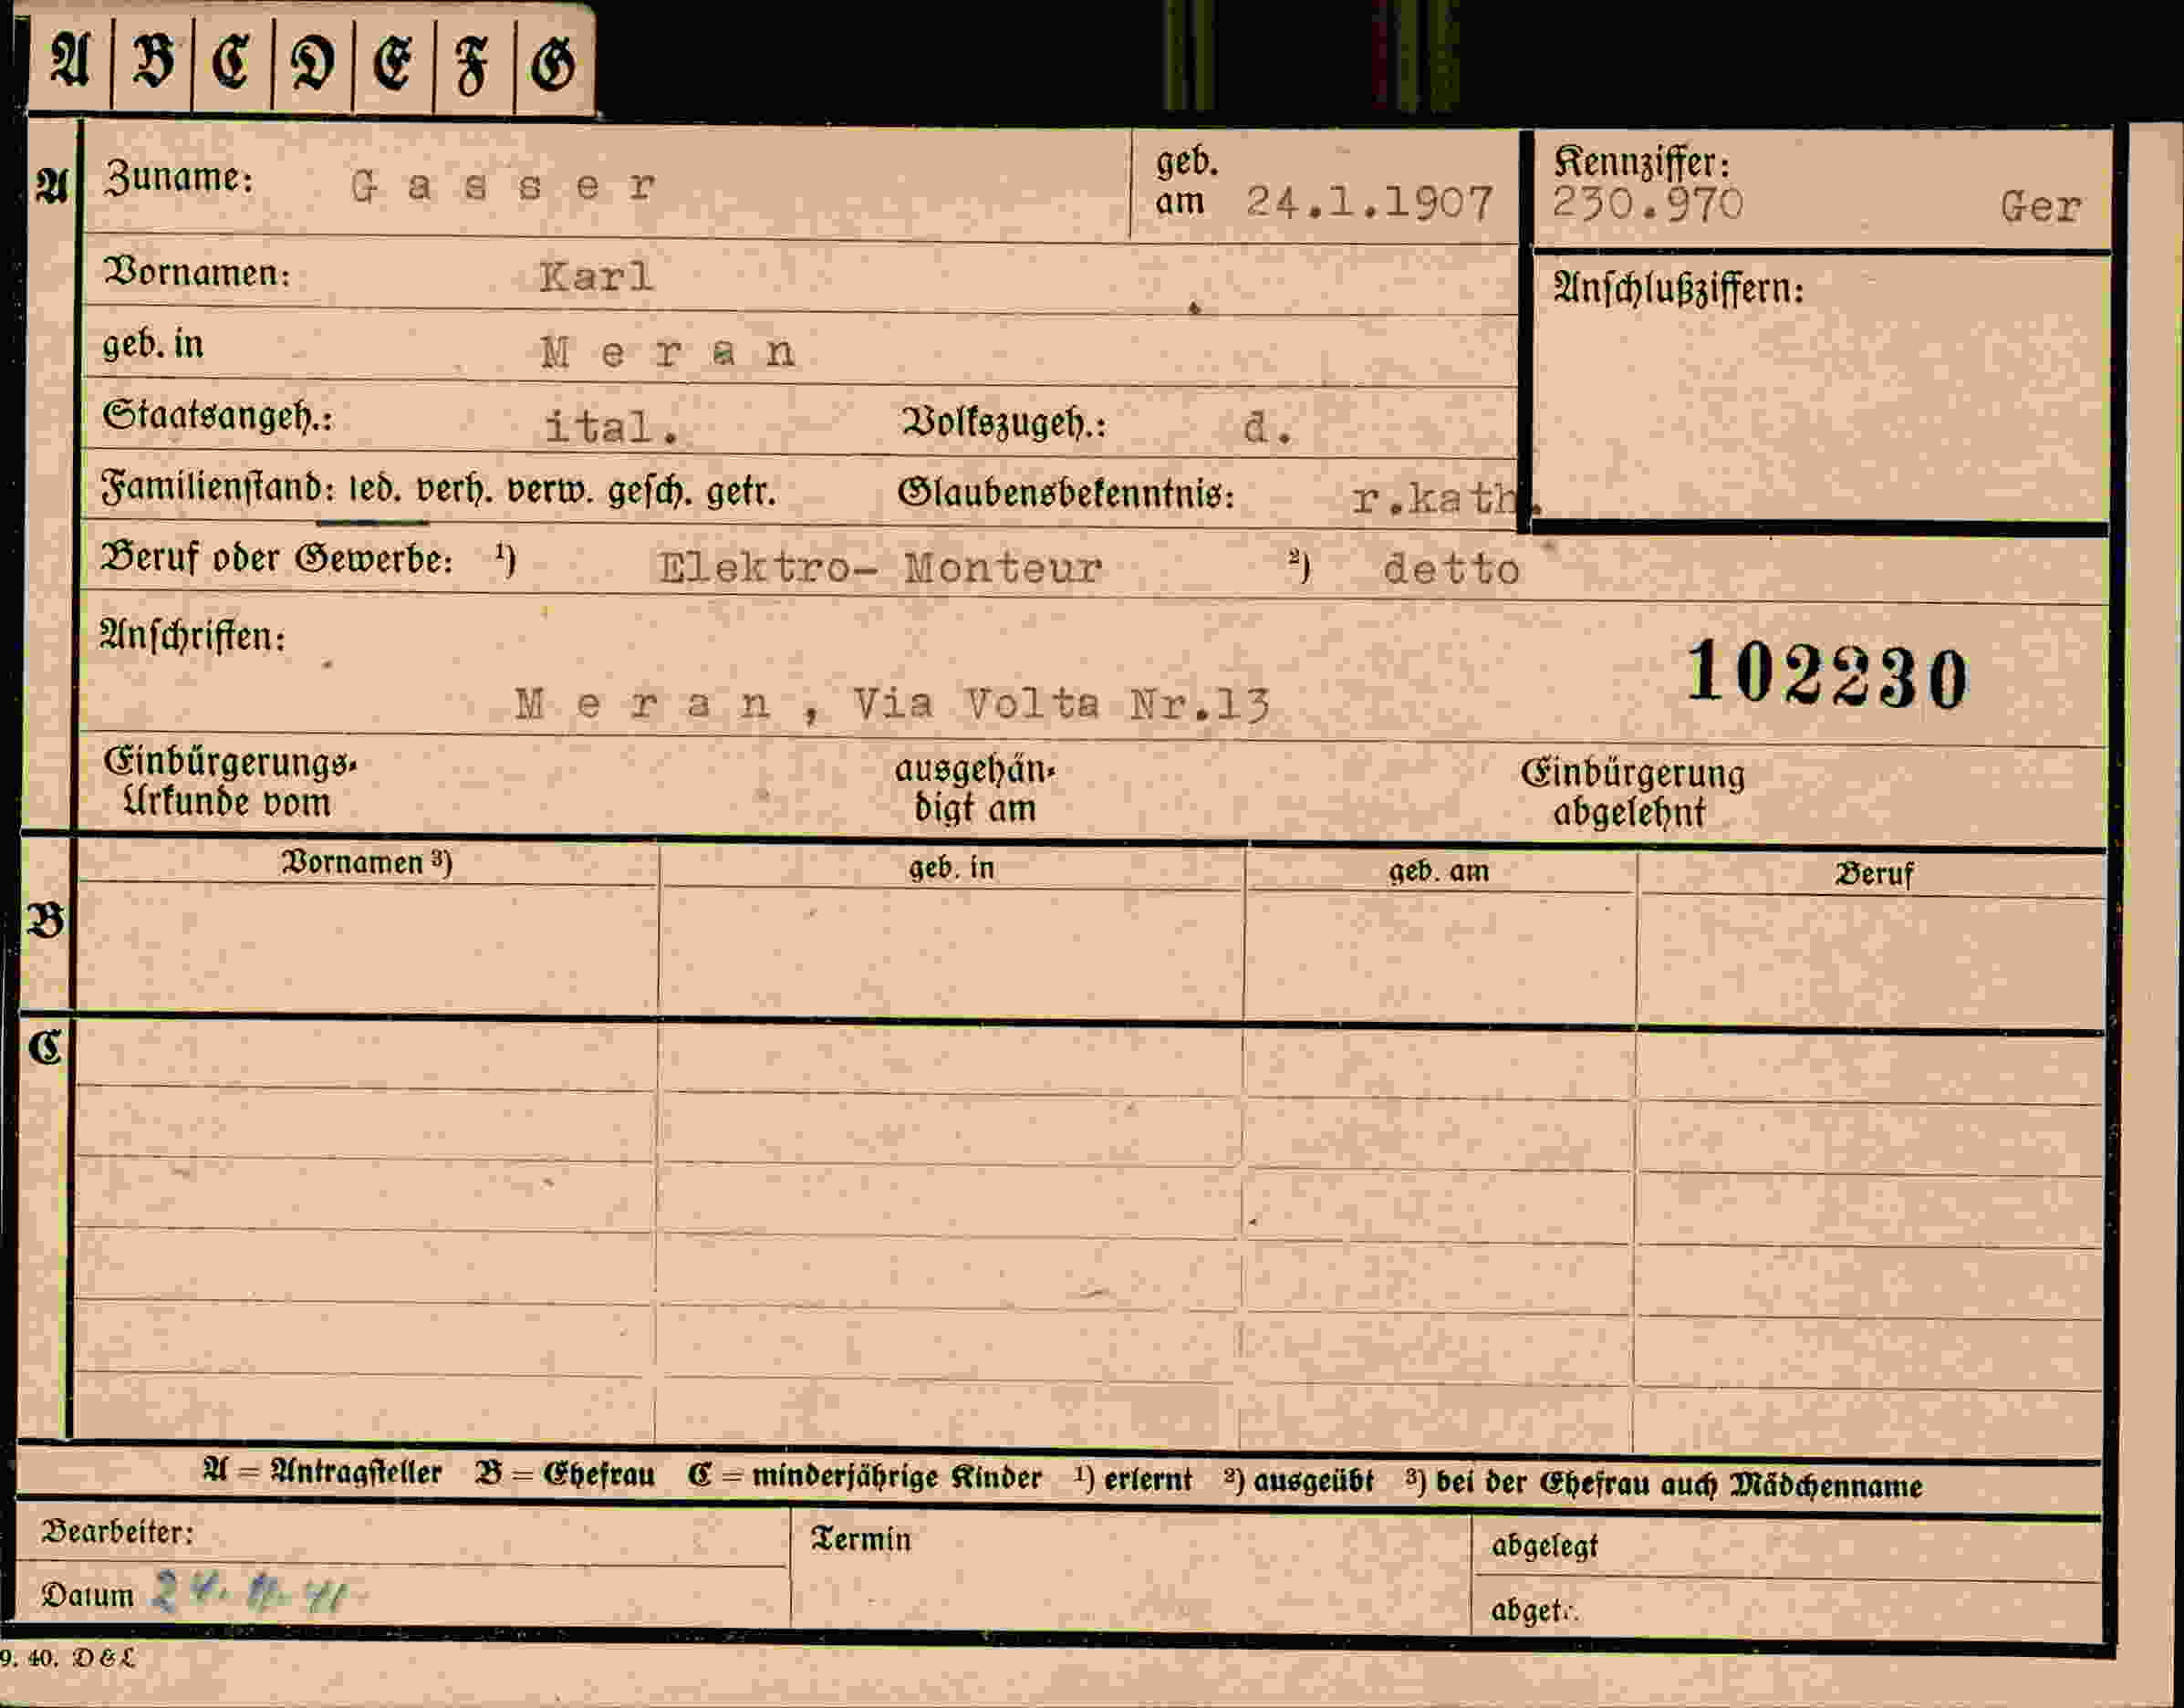 A B C D E F G
A Zuname: Gasser geb. am 24.1.1907 Kennziffer: 230.970 Ger
Vornamen: Karl Anschlußziffern:
geb. in Meran
Staatsangeh.: ital. Volkszugeh.: d.
Familienstand: led. verh. verw. gesch. getr. Glaubensbekenntnis: r.kath.
Beruf oder Gewerbe: ¹) Elektro- Monteur ²) detto
Anschriften: 102230
Meran, Via Volta Nr.13
Einbürgerungs- ausgehän- Einbürgerung
Urkunde vom digt am abgelehnt
Vornamen ³) geb. in geb. am Beruf
B
C
A = Antragsteller B = Ehefrau C = minderjährige Kinder ¹) erlernt ²) ausgeübt ³) bei der Ehefrau auch Mädchenname
Bearbeiter: Termin abgelegt
Datum abgetr.
9. 40. D & L